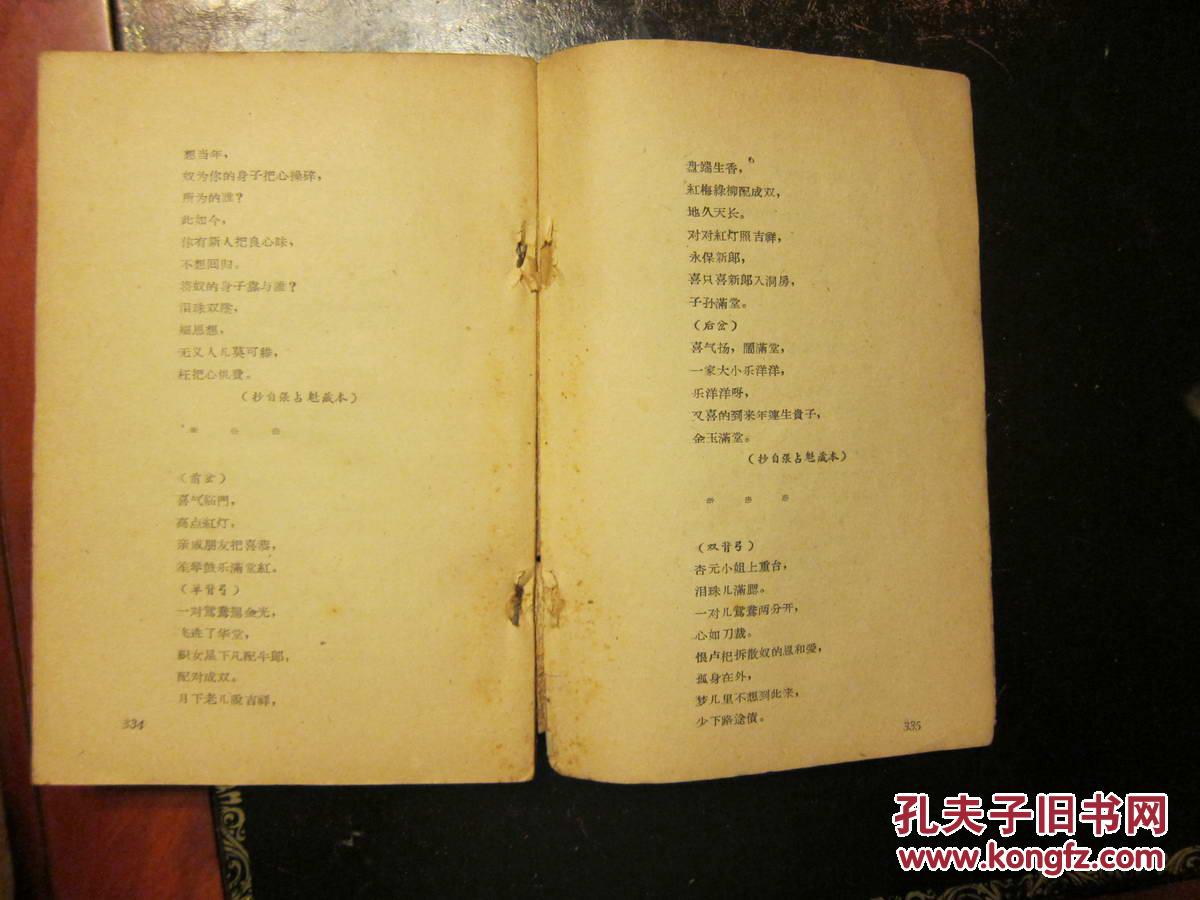 想当年，
奴为你的身子把心操碎，
所为的谁？
此如今，
你有新人把良心昧，
不想回归。
将奴的身子靠与谁？
泪珠双
細思想，
无义人儿莫可
枉把心俱費。
（抄自張占魁藏本）
（前岔）
喜气临門，
高点紅灯，
亲戚朋友把喜恭，
笙琴鼓乐滿堂紅。
（单背弓）
一对鴛鴦金光，
飞进了华堂，
織女星下凡配牛郎，
配对成双。
月下老儿說吉祥，
334
盘端生香，
紅梅綠柳配成双，
地久天长。
对对紅灯照吉祥，
永保新郎，
喜只喜新郎入洞房，
子孙滿堂。
（后岔）
喜气扬，闔滿堂，
一家大小乐洋洋，
乐洋洋呀，
又喜的到来年窪生貴子，
金玉滿堂。
（抄自張占魁藏本）
（双背弓）
杏元小姐上重台，
泪珠儿滿腮。
一对儿鴛鴦两分开，
心如刀裁。
恨卢杞拆散奴的恩和愛，
孤身在外，
梦儿里不想到此来，
少下路途债。
335
孔夫子旧书网
www.kongfz.com